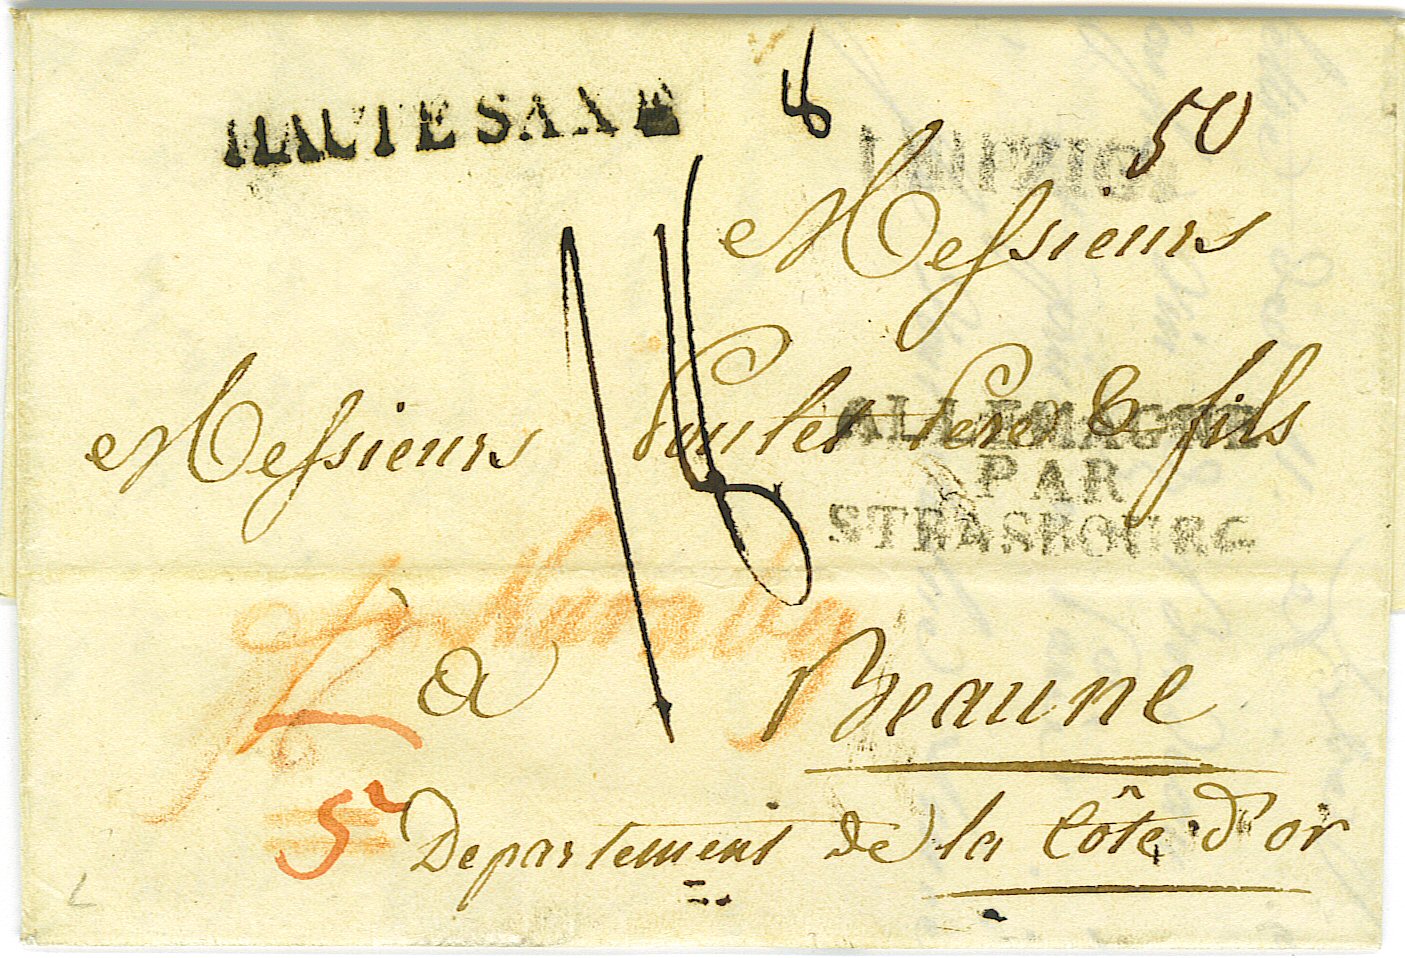 HAUTE SAXE
6
50
LEIPZIG
Messieurs
Messieurs Poulet Pere & fils
ALLEMAGNE
PAR
STRASBOURG
16
à Beaune
52
Departement de la Côte d'or